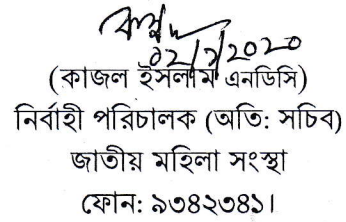 ১২/১/২০২০
(কাজল ইসলাম এনডিসি)
নির্বাহী পরিচালক (অতি: সচিব)
জাতীয় মহিলা সংস্থা
ফোন: ৯৩৪২৩৪১।